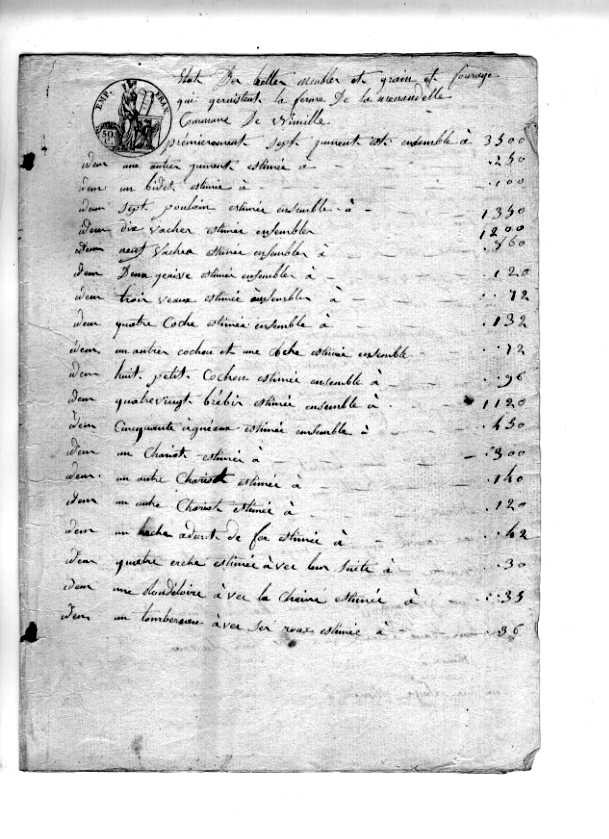 EMP. FRAN
50
Etat Des bettes meubles et grain et fourage
qui garnissent la ferme De la
Commune De Wimille
premierement sept jument est. ensemble à 3500
idem une autres jument estimée à 250
idem un bidet estimée à 100
idem sept poulain estimée ensemble à 1350
idem dix vaches estimée ensembles 1200
idem neuf vaches estimée ensembles à 560
idem Deux estimée ensembles à 120
idem trois veaux estimée ensembles à 72
idem quatre Coche estimée ensemble à 132
idem un autres cochon et une Coche estimée ensemble 72
idem huit petit Cochon estimée ensemble à 96
idem quatrevingt brébis estimée ensemble à 1120
idem Cinquante agneaux estimée ensemble à 450
idem un Chariot estimée à 300
idem un autre Chariot estimée à 140
idem un autre Chariot estimée à 120
idem un adent de fer estimée à 42
idem quatre erche estimée àver leur suite à 30
idem une àver la Chaine estimée à 35
idem un tombereau àver ses roues estimée à 36